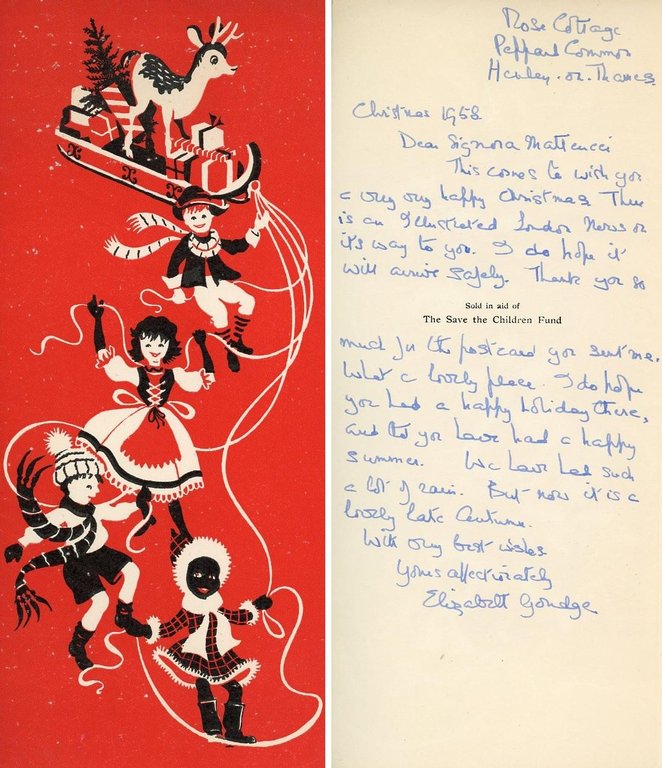 Rose Cottage
Peppard Common
Henley-on-Thames
Christmas 1958
Dear Signora Mattencci
This comes to wish you
a very very happy Christmas. There
is an Illustrated London News on
it's way to you. I do hope it
will arrive safely. Thank you so
Sold in aid of
The Save the Children Fund
much for the postcard you sent me.
What a lovely place. I do hope
you had a happy holiday there,
and tht you have had a happy
summer. We have had such
a lot of rain. But now it is a
lovely late Autumn.
With very best wishes
Yours affectionately
Elizabeth Goudge